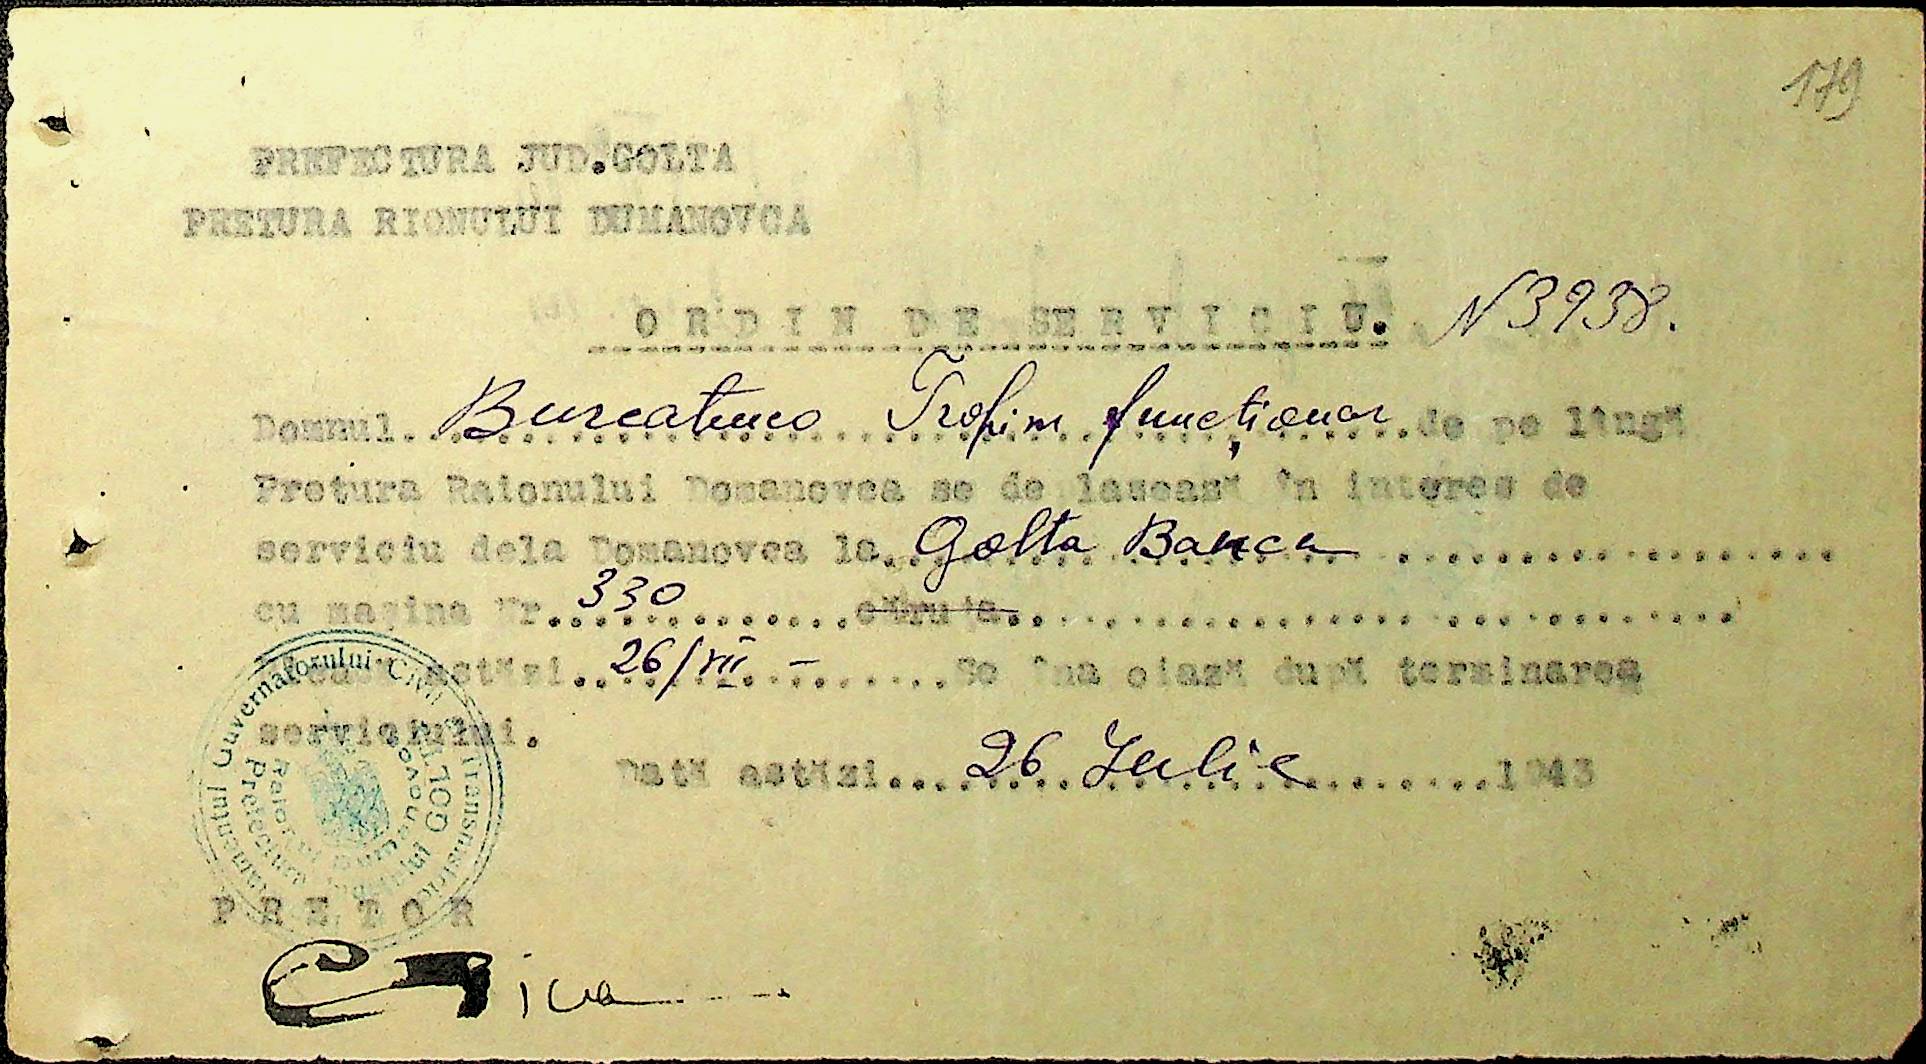 179
PREFECTURA JUD.GOLTA
PRETURA RIONULUI DUMANOVCA
ORDIN DE SERVICIU. N 3938.
Domnul. Burcatenco Trofim funcționar de pe lîngă
Pretura Raionului Domanovca se de lasează în interes de
serviciu dela Domanovca la Golta Banca
cu mașina Nr. 330 căruța
astăzi 26/VII – Se îna oiază după terminarea
serviciului.
Dată astăzi 26 Iulie 1943
Guvernatorului Civil Transnistriei
Prefectura Județului GOLTA
PRETOR